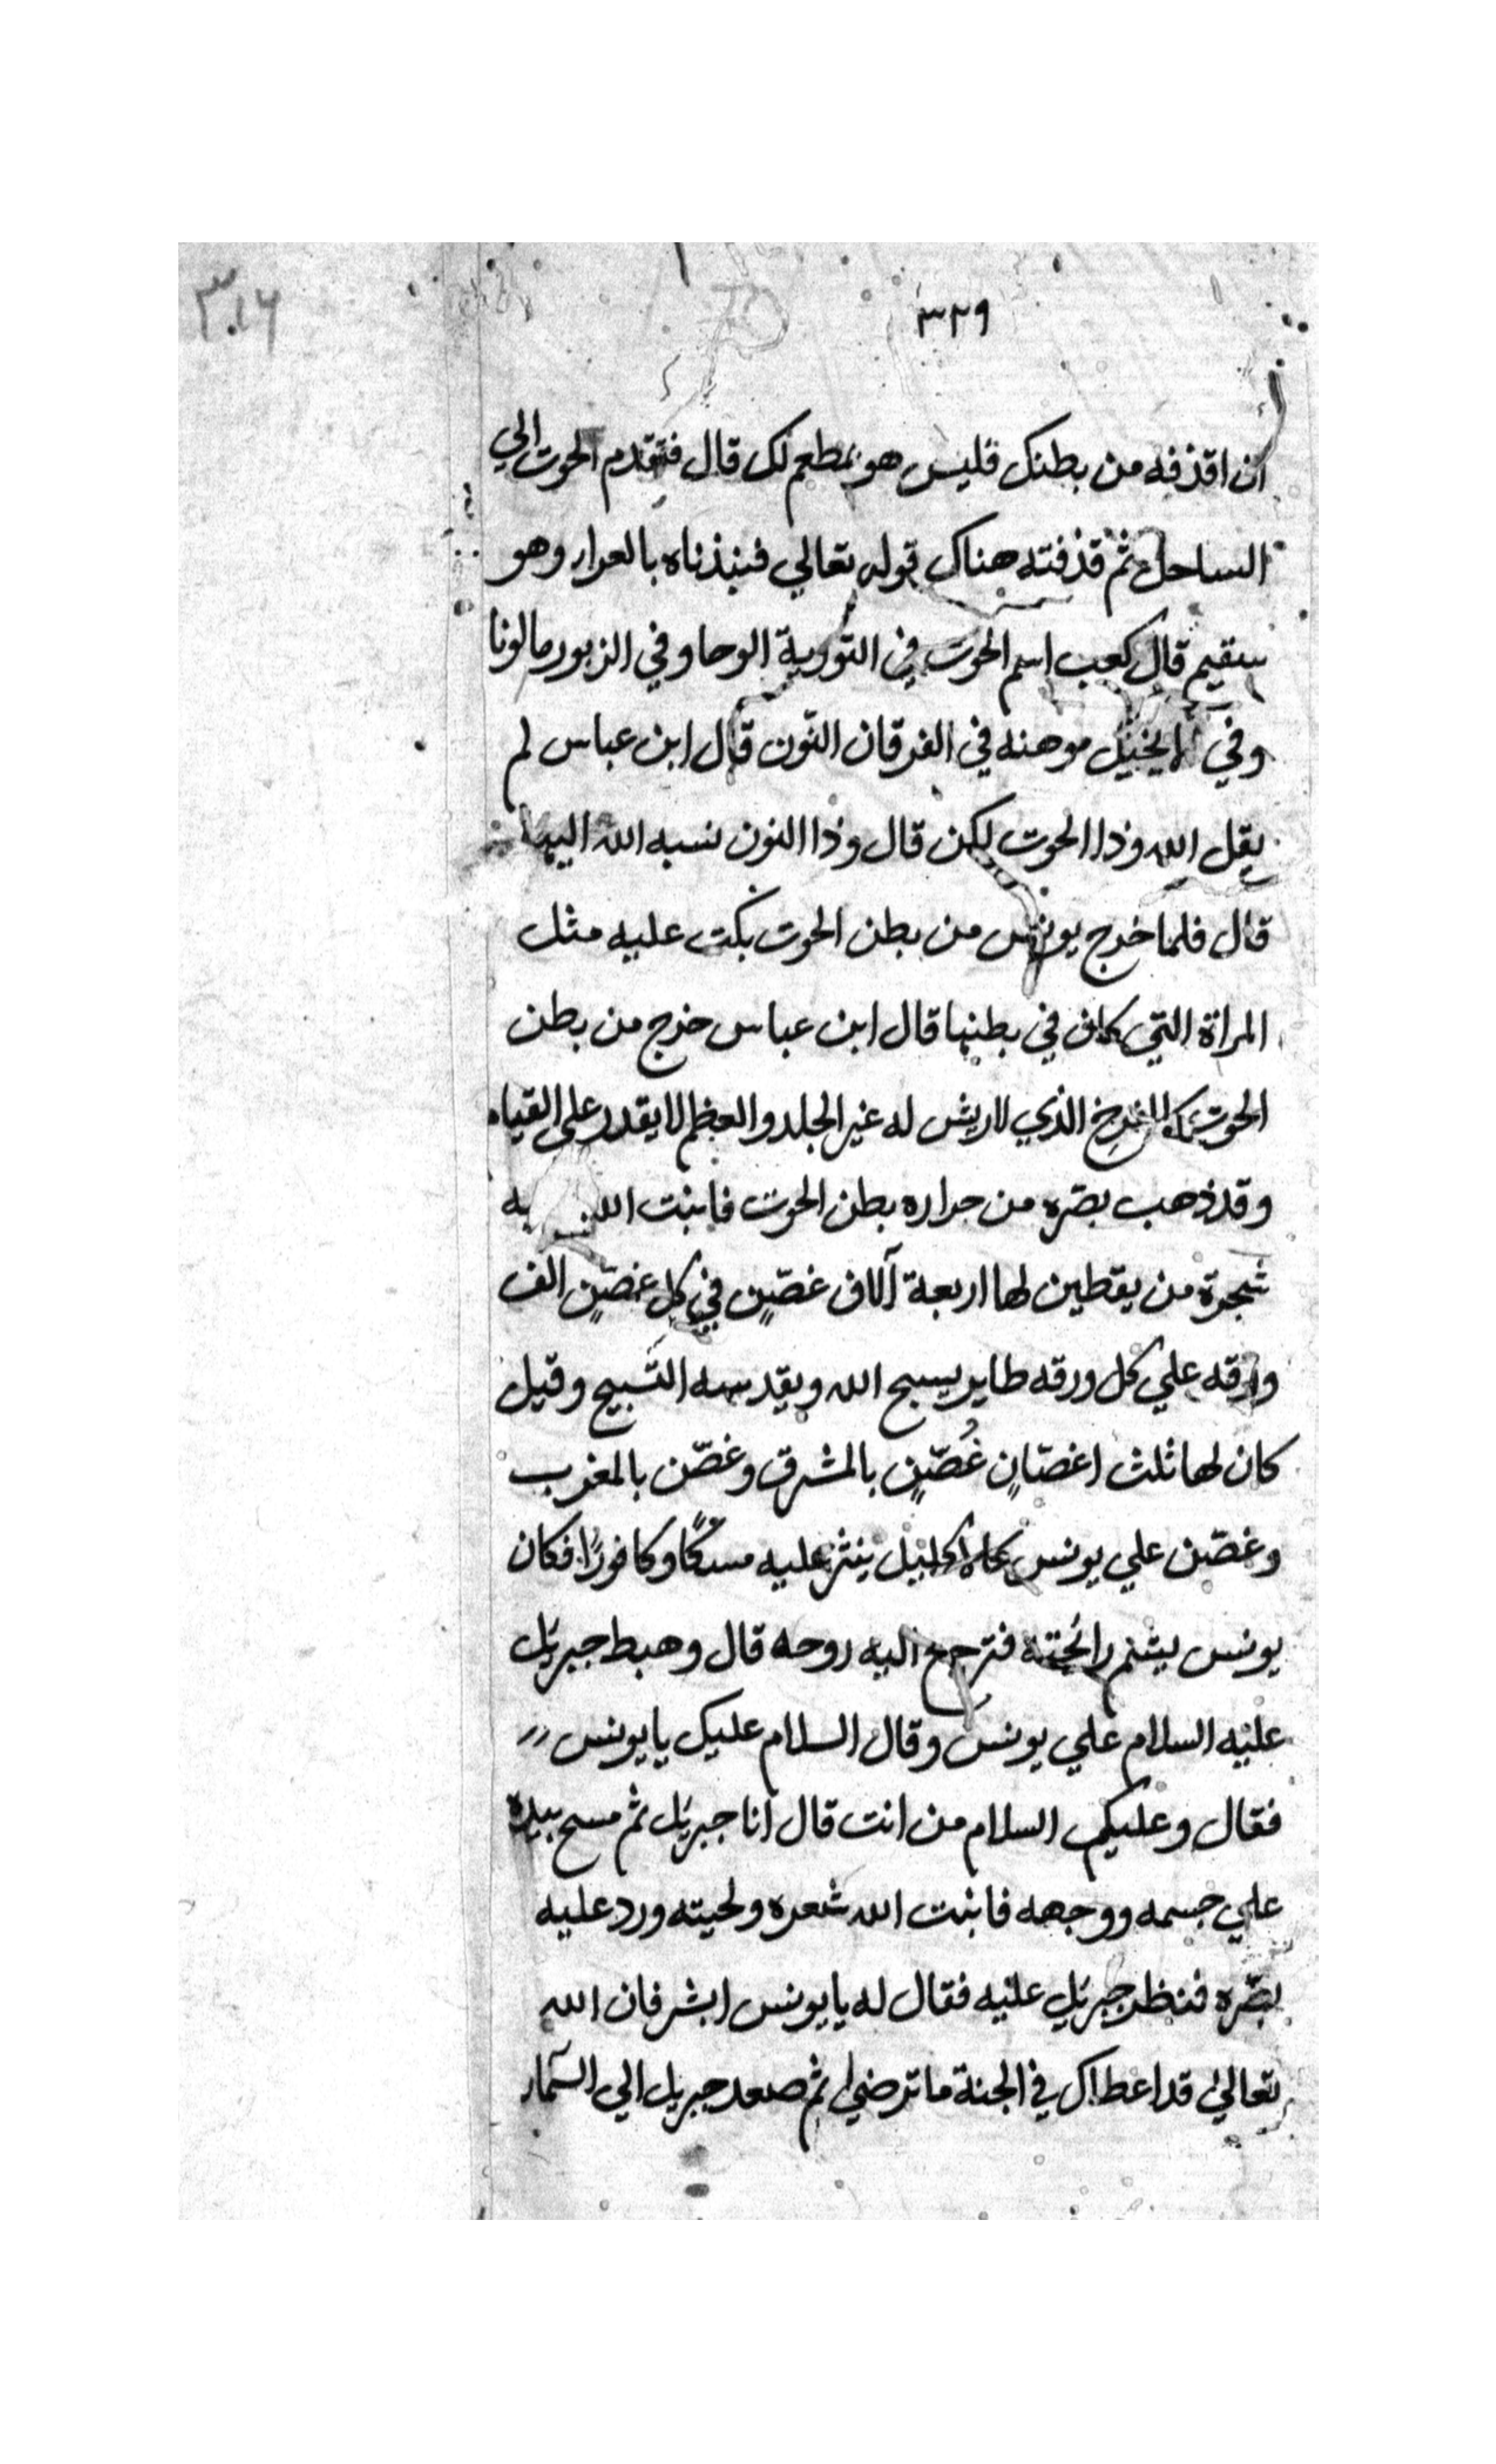 ٣٢٩
٣٠١٦
ان اقذفه من بطنك فليس هو بمطعم لك قال فتقدم الحوت الي
الساحل ثم قذفته هناك قوله تعالي فنبذناه بالعراء وهو
سقيم قال كعب اسم الحوت في التورية الوحا وفي الزبور مالونا
وفي الانجيل موهنه في الفرقان النون قال ابن عباس لم
يقل الله وذا الحوت لكن قال وذا النون نسبه الله اليها
قال فلما خرج يونس من بطن الحوت بكت عليه مثل
المراة التي كان في بطنها قال ابن عباس خرج من بطن
الحوت كالفرخ الذي لاريش له غير الجلد والعظم لا يقدر على القيام
وقد ذهب بصره من حراره بطن الحوت فانبت الله
شجرة من يقطين لها اربعة آلاف غصن في كل غصن الف
ورقه علي كل ورقه طاير يسبح الله ويقدسه التسبيح وقيل
كان لها ثلث اغصان غصن بالمشرق وغصن بالمغرب
وغصن علي يونس كالاكليل ينثر عليه مسكا وكافورا فكان
يونس يشم رائحته فترجع اليه روحه قال وهبط جبريل
عليه السلام علي يونس وقال السلام عليك يا يونس
فقال وعليكم السلام من انت قال انا جبريل ثم مسح بيده
علي جسمه ووجهه فانبت الله شعره ولحيته ورد عليه
بصره فنظر جبريل عليه فقال له يا يونس ابشر فان الله
تعالي قد اعطاك في الجنة ما ترضي ثم صعد جبريل الي السماء